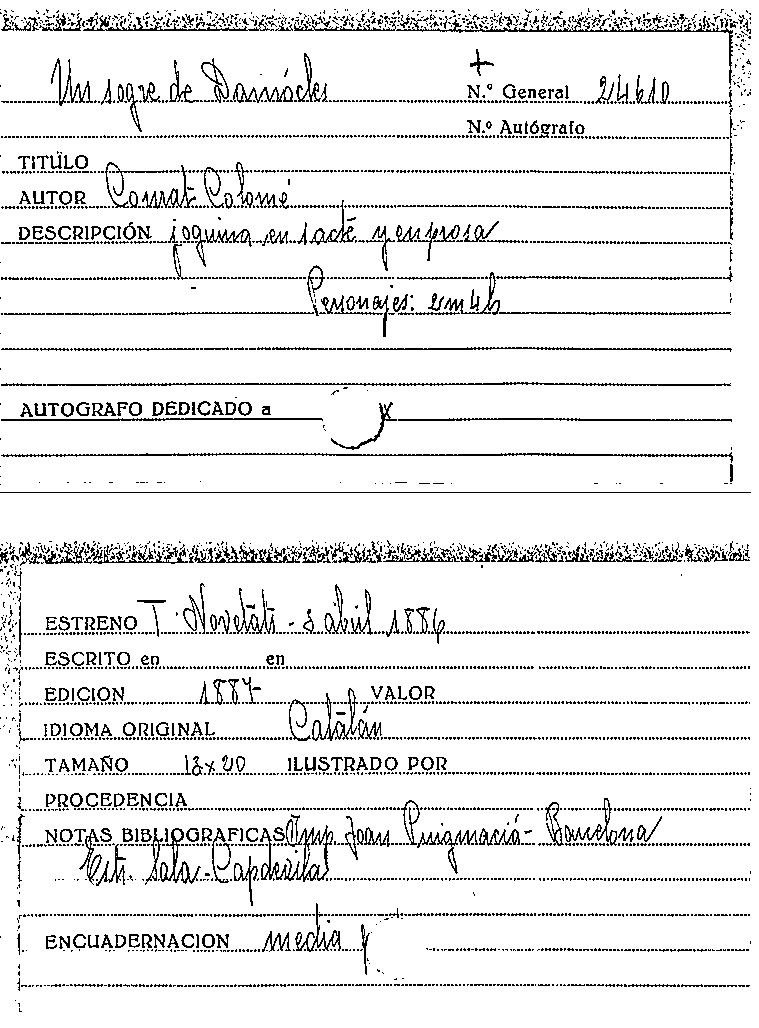 Un sogre de Damócles
+
N.º General 24610
N.º Autógrafo
TITULO
AUTOR Conrat Colomé
DESCRIPCIÓN joguina en 1 acte y en prosa
Personajes: 2m 4h
AUTOGRAFO DEDICADO a
ESTRENO T. Novetats - 8 abril 1886
ESCRITO en en
EDICION 1887 VALOR
IDIOMA ORIGINAL Catalán
TAMAÑO 13x20 ILUSTRADO POR
PROCEDENCIA
NOTAS BIBLIOGRAFICAS Imp. Joan Puigmaciá - Barcelona
Estr. Sala - Capdevila
ENCUADERNACION media